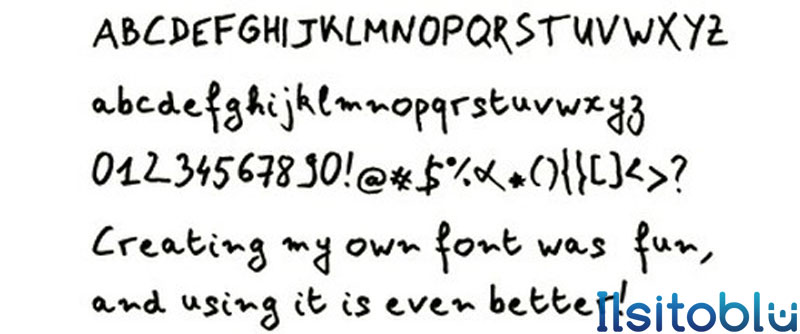 ABCDEFGHIJKLMNOPQRSTUVWXYZ
abcdefghijklmnopqrstuvwxyz
01234567890!@#$%&*(){}[]<>?
Creating my own font was fun,
and using it is even better!
Ilsitoblu